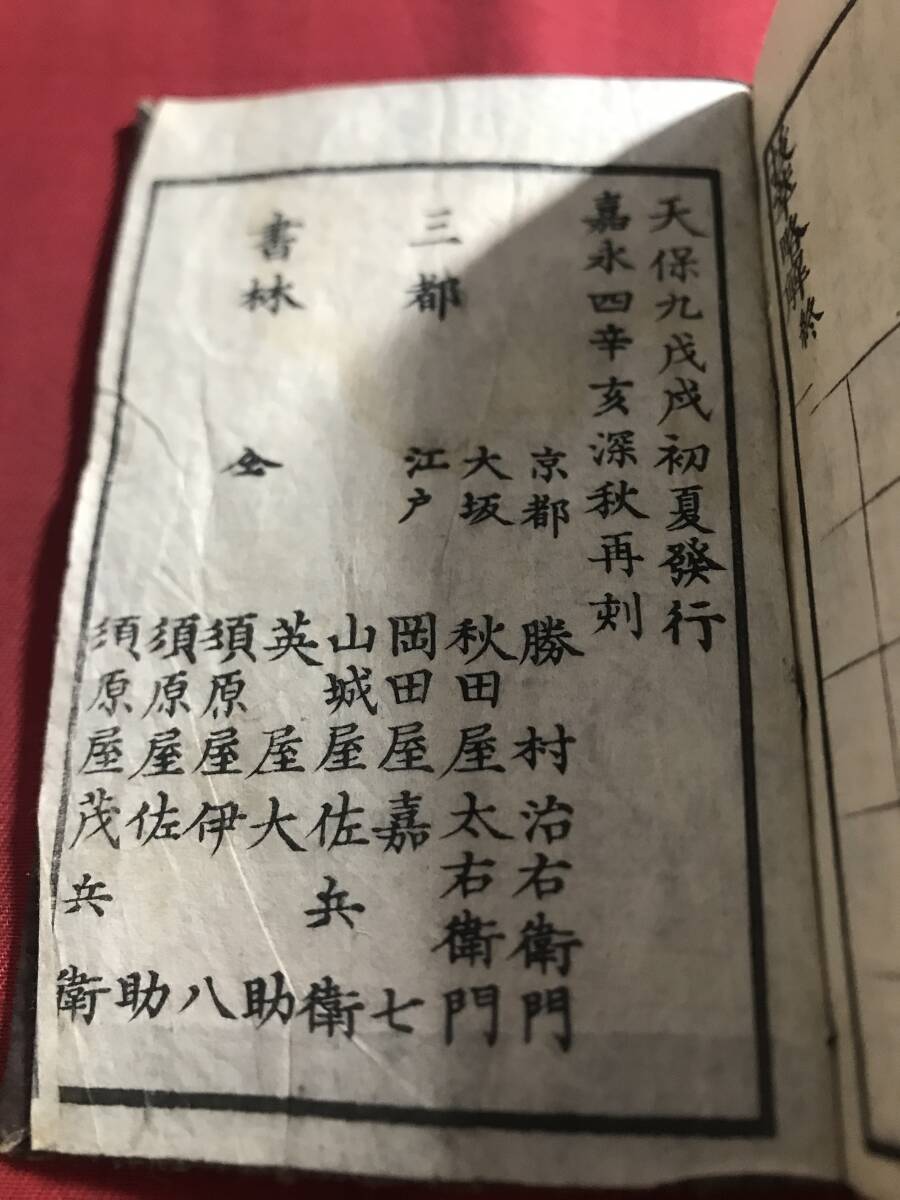 終
天保九戊戌初夏發行
嘉永四辛亥深秋再刻
三都
書林
京都 勝村治右衛門
大坂 秋田屋太右衛門
江戸 岡田屋嘉七
山城屋佐兵衛
英屋大助
仝 須原屋伊八
須原屋佐助
須原屋茂兵衛